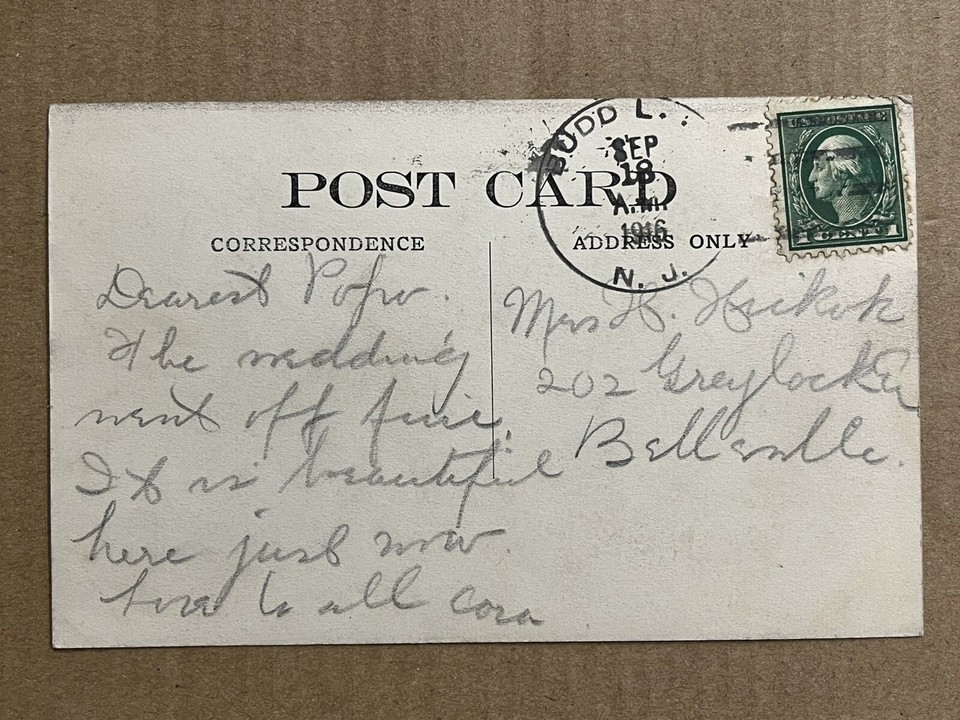 POST CARD
CORRESPONDENCE
ADDRESS ONLY
BUDD L.
SEP
18
A.M.
1916
N. J.
U.S. POSTAGE
1 CENT 1
Dearest
The wedding
went off fine.
It is beautiful
here just now.
Love to all Cora
Mrs H. Hickok
202 Greylock
Belleville.